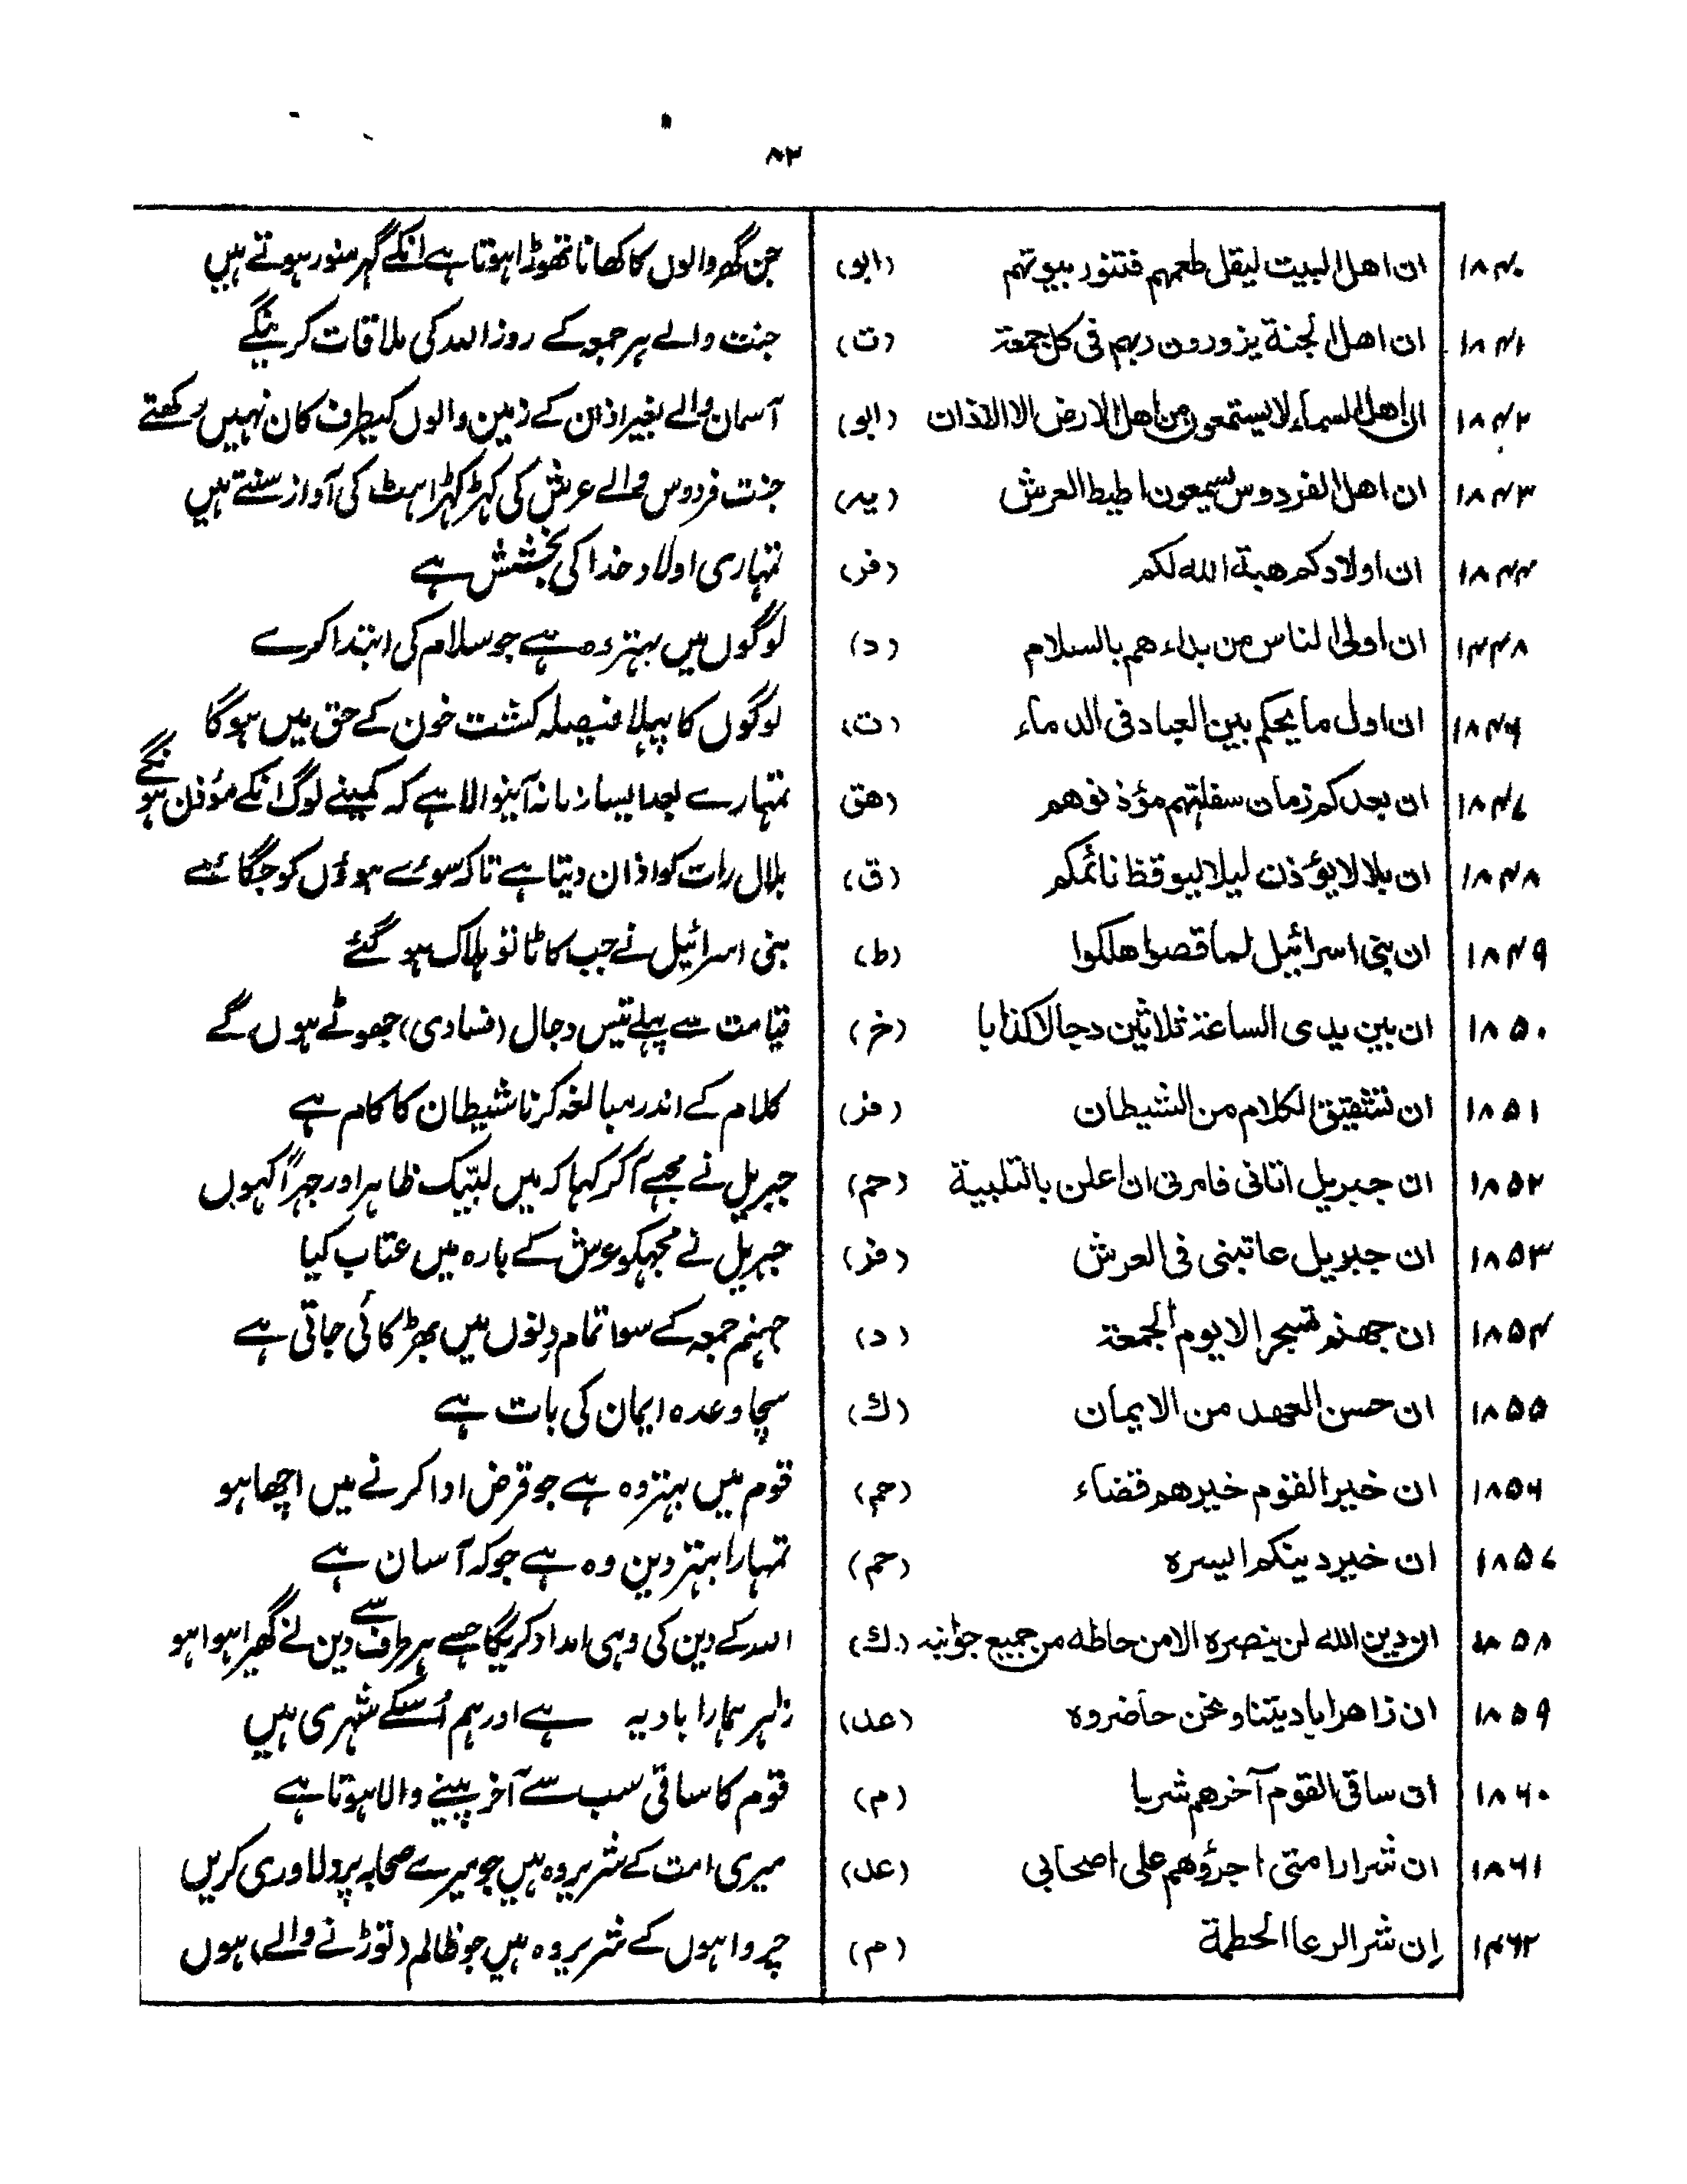 ۸۳
۱۸۴۰ ان اهل البيت ليقل طعمهم فتنور بيوتهم (ابو) جن گھر والوں کا کھانا تھوڑا ہوتا ہے انکے گہر منور ہوتے ہیں
۱۸۴۱ ان اهل الجنة يزورون ربهم فى كل جمعة (ت) جنت والے ہر جمعہ کے روز اللہ کی ملاقات کرینگے
۱۸۴۲ ان اهل السماء لا يستمعون من اهل الارض الا الاذان (ابو) آسمان والے بغیر اذان کے زمین والوں کیطرف کان نہیں رکھتے
۱۸۴۳ ان اهل الفردوس يسمعون اطيط العرش (يد) جنت فردوس والے عرش کی کہڑکہڑاہٹ کی آواز سنتے ہیں
۱۸۴۴ ان اولادكم هبة الله لكم (فر) تمہاری اولاد خدا کی بخشش ہے
۱۴۴۸ ان اولى الناس من بداء هم بالسلام (د) لوگوں میں بہتر وہ ہے جو سلام کی ابتدا کرے
۱۸۴۶ ان اول ما يحكم بين العباد فى الدماء (ت) لوگوں کا پہلا فیصلہ کشت خون کے حق میں ہوگا
۱۸۴۷ ان بعدكم زمان سفلتهم مؤذنوهم (هق) تمہارے بعد ایسا زمانہ آنیوالا ہے کہ کمینے لوگ انکے مؤذن ہونگے
۱۸۴۸ ان بلالا يؤذن ليلا ليوقظ نائمكم (ق) بلال رات کو اذان دیتا ہے تاکہ سوئے ہوؤں کو جگائے
۱۸۴۹ ان بنى اسرائيل لما قصوا هلكوا (ط) بنی اسرائیل نے جب کاٹا تو ہلاک ہو گئے
۱۸۵۰ ان بين يدى الساعة ثلاثين دجالا كذابا (خ) قیامت سے پہلے تیس دجال (فسادی) جھوٹے ہوں گے
۱۸۵۱ ان تشقيق الكلام من الشيطان (فر) کلام کے اندر مبالغہ کرنا شیطان کا کام ہے
۱۸۵۲ ان جبريل اتانى فامرنى ان اعلن بالتلبية (حم) جبریل نے مجھے آکر کہا کہ میں لبیک ظاہر اور جہراً کہوں
۱۸۵۳ ان جبريل عاتبنى فى العرش (فر) جبریل نے مجہکو عرش کے بارہ میں عتاب کیا
۱۸۵۴ ان جهنم تسجر الا يوم الجمعة (د) جہنم جمعہ کے سوا تمام دنوں میں بھڑکائی جاتی ہے
۱۸۵۵ ان حسن العهد من الايمان (ك) سچا وعدہ ایمان کی بات ہے
۱۸۵۶ ان خير القوم خيرهم قضاء (حم) قوم میں بہتر وہ ہے جو قرض ادا کرنے میں اچھا ہو
۱۸۵۷ ان خير دينكم ايسره (حم) تمہارا بہتر دین وہ ہے جو کہ آسان ہے
۱۸۵۸ ان دين الله لن ينصره الا من حاطه من جميع جوانبه (ك) اللہ کے دین کی وہی امداد کریگا جسے ہر طرف سے دین نے گھیرا ہوا ہو
۱۸۵۹ ان زاهرا باديتنا ونحن حاضروه (عد) زاہر ہمارا بادیہ ہے اور ہم اُسکے شہری ہیں
۱۸۶۰ ان ساقى القوم آخرهم شربا (م) قوم کا ساقی سب سے آخر پینے والا ہوتا ہے
۱۸۶۱ ان شرار امتى اجرؤهم على اصحابى (عد) میری امت کے شریر وہ ہیں جو میرے صحابہ پر دلاوری کریں
۱۸۶۲ إن شر الرعا الحطمة (م) چرواہوں کے شریر وہ ہیں جو ظالم (توڑنے والے) ہوں